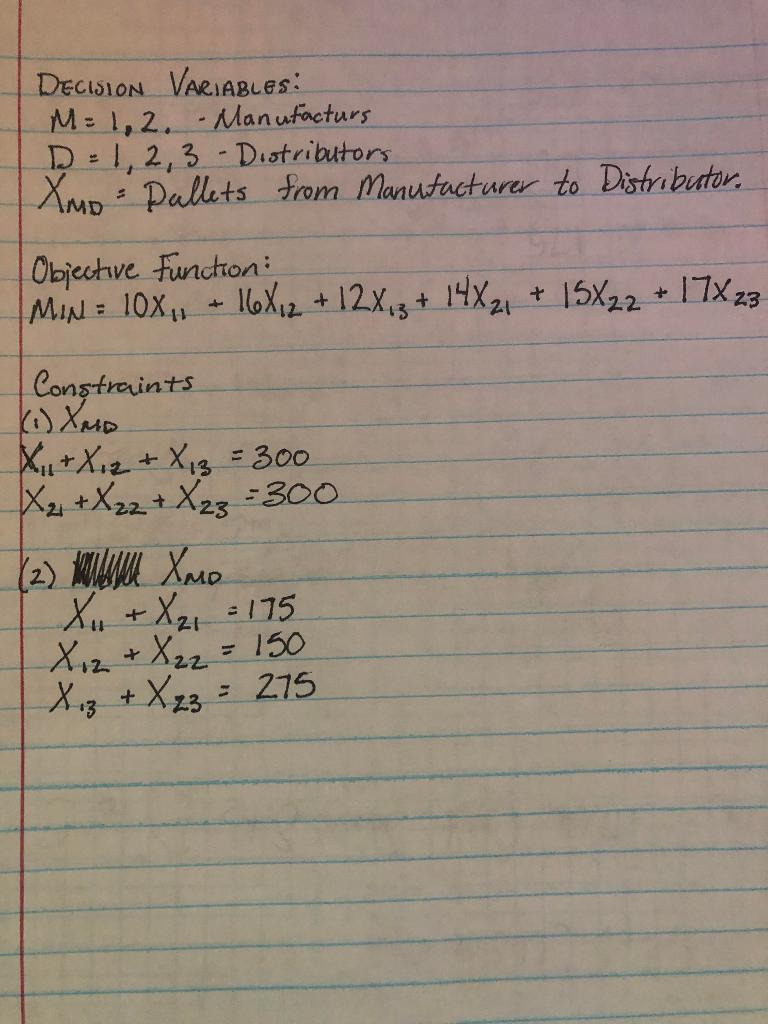 DECISION VARIABLES:
M = 1, 2. - Manufacturs
D = 1, 2, 3 - Distributors
X_MD = Pallets from Manufacturer to Distributor.
Objective Function:
MIN = 10X_11 + 16X_12 + 12X_13 + 14X_21 + 15X_22 + 17X_23
Constraints
(1) X_MD
X_11 + X_12 + X_13 = 300
X_21 + X_22 + X_23 = 300
(2) X_MD
X_11 + X_21 = 175
X_12 + X_22 = 150
X_13 + X_23 = 275